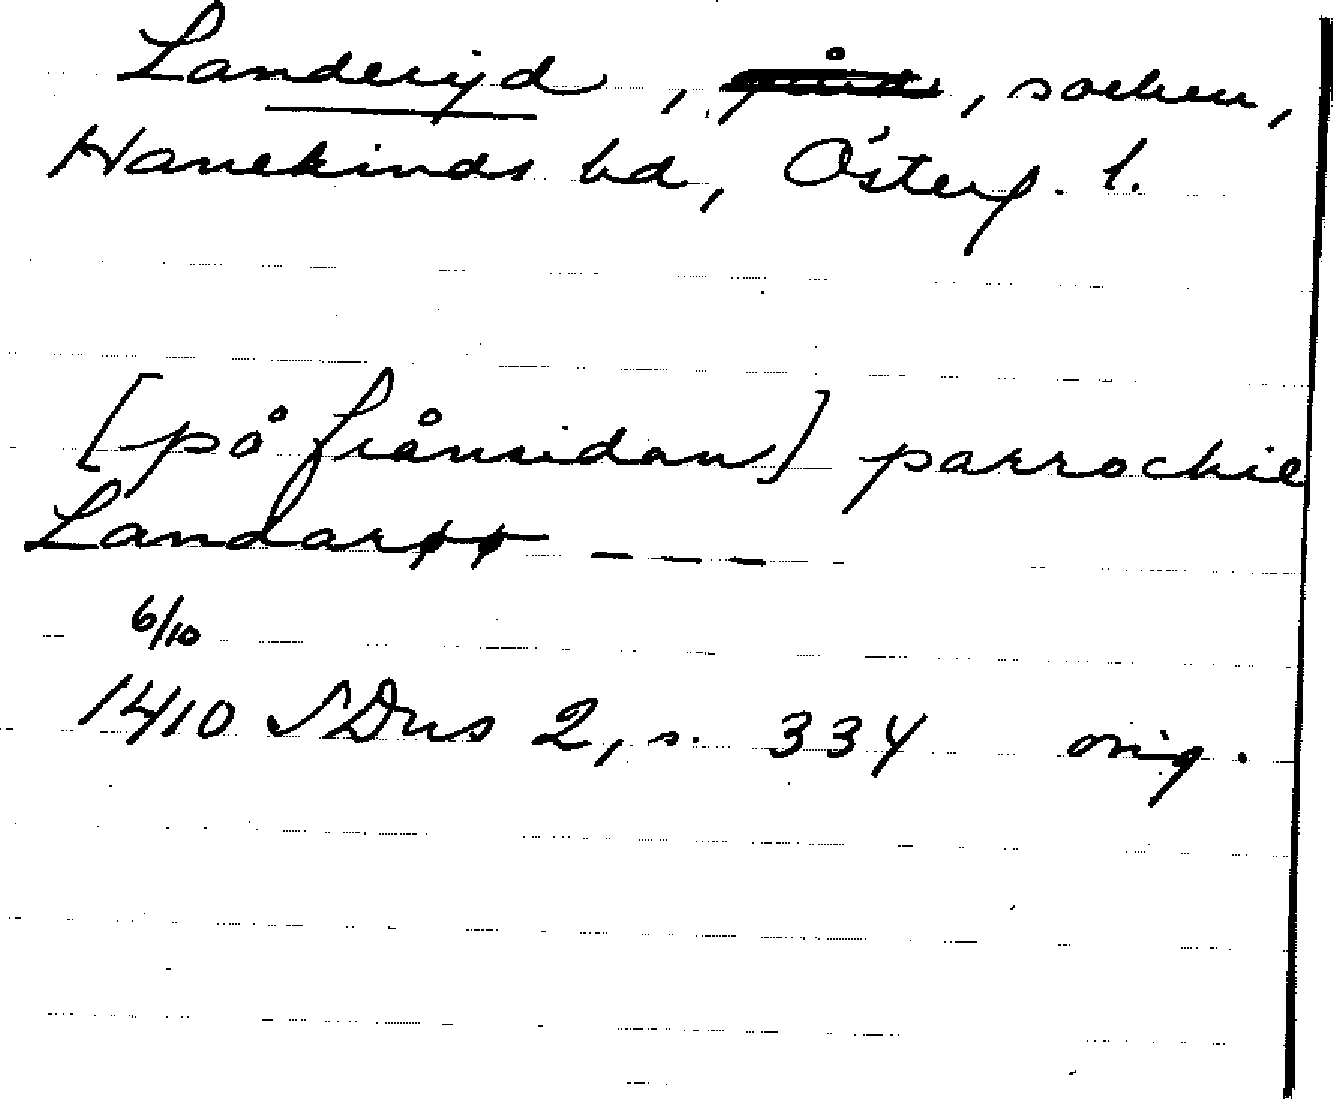 Landeryd, , socken,
Hanekinds hd, Österg. l.
[på frånsidan] parrochie
Landarøø - - -
6/10
1410 SDns 2, s. 334 orig.